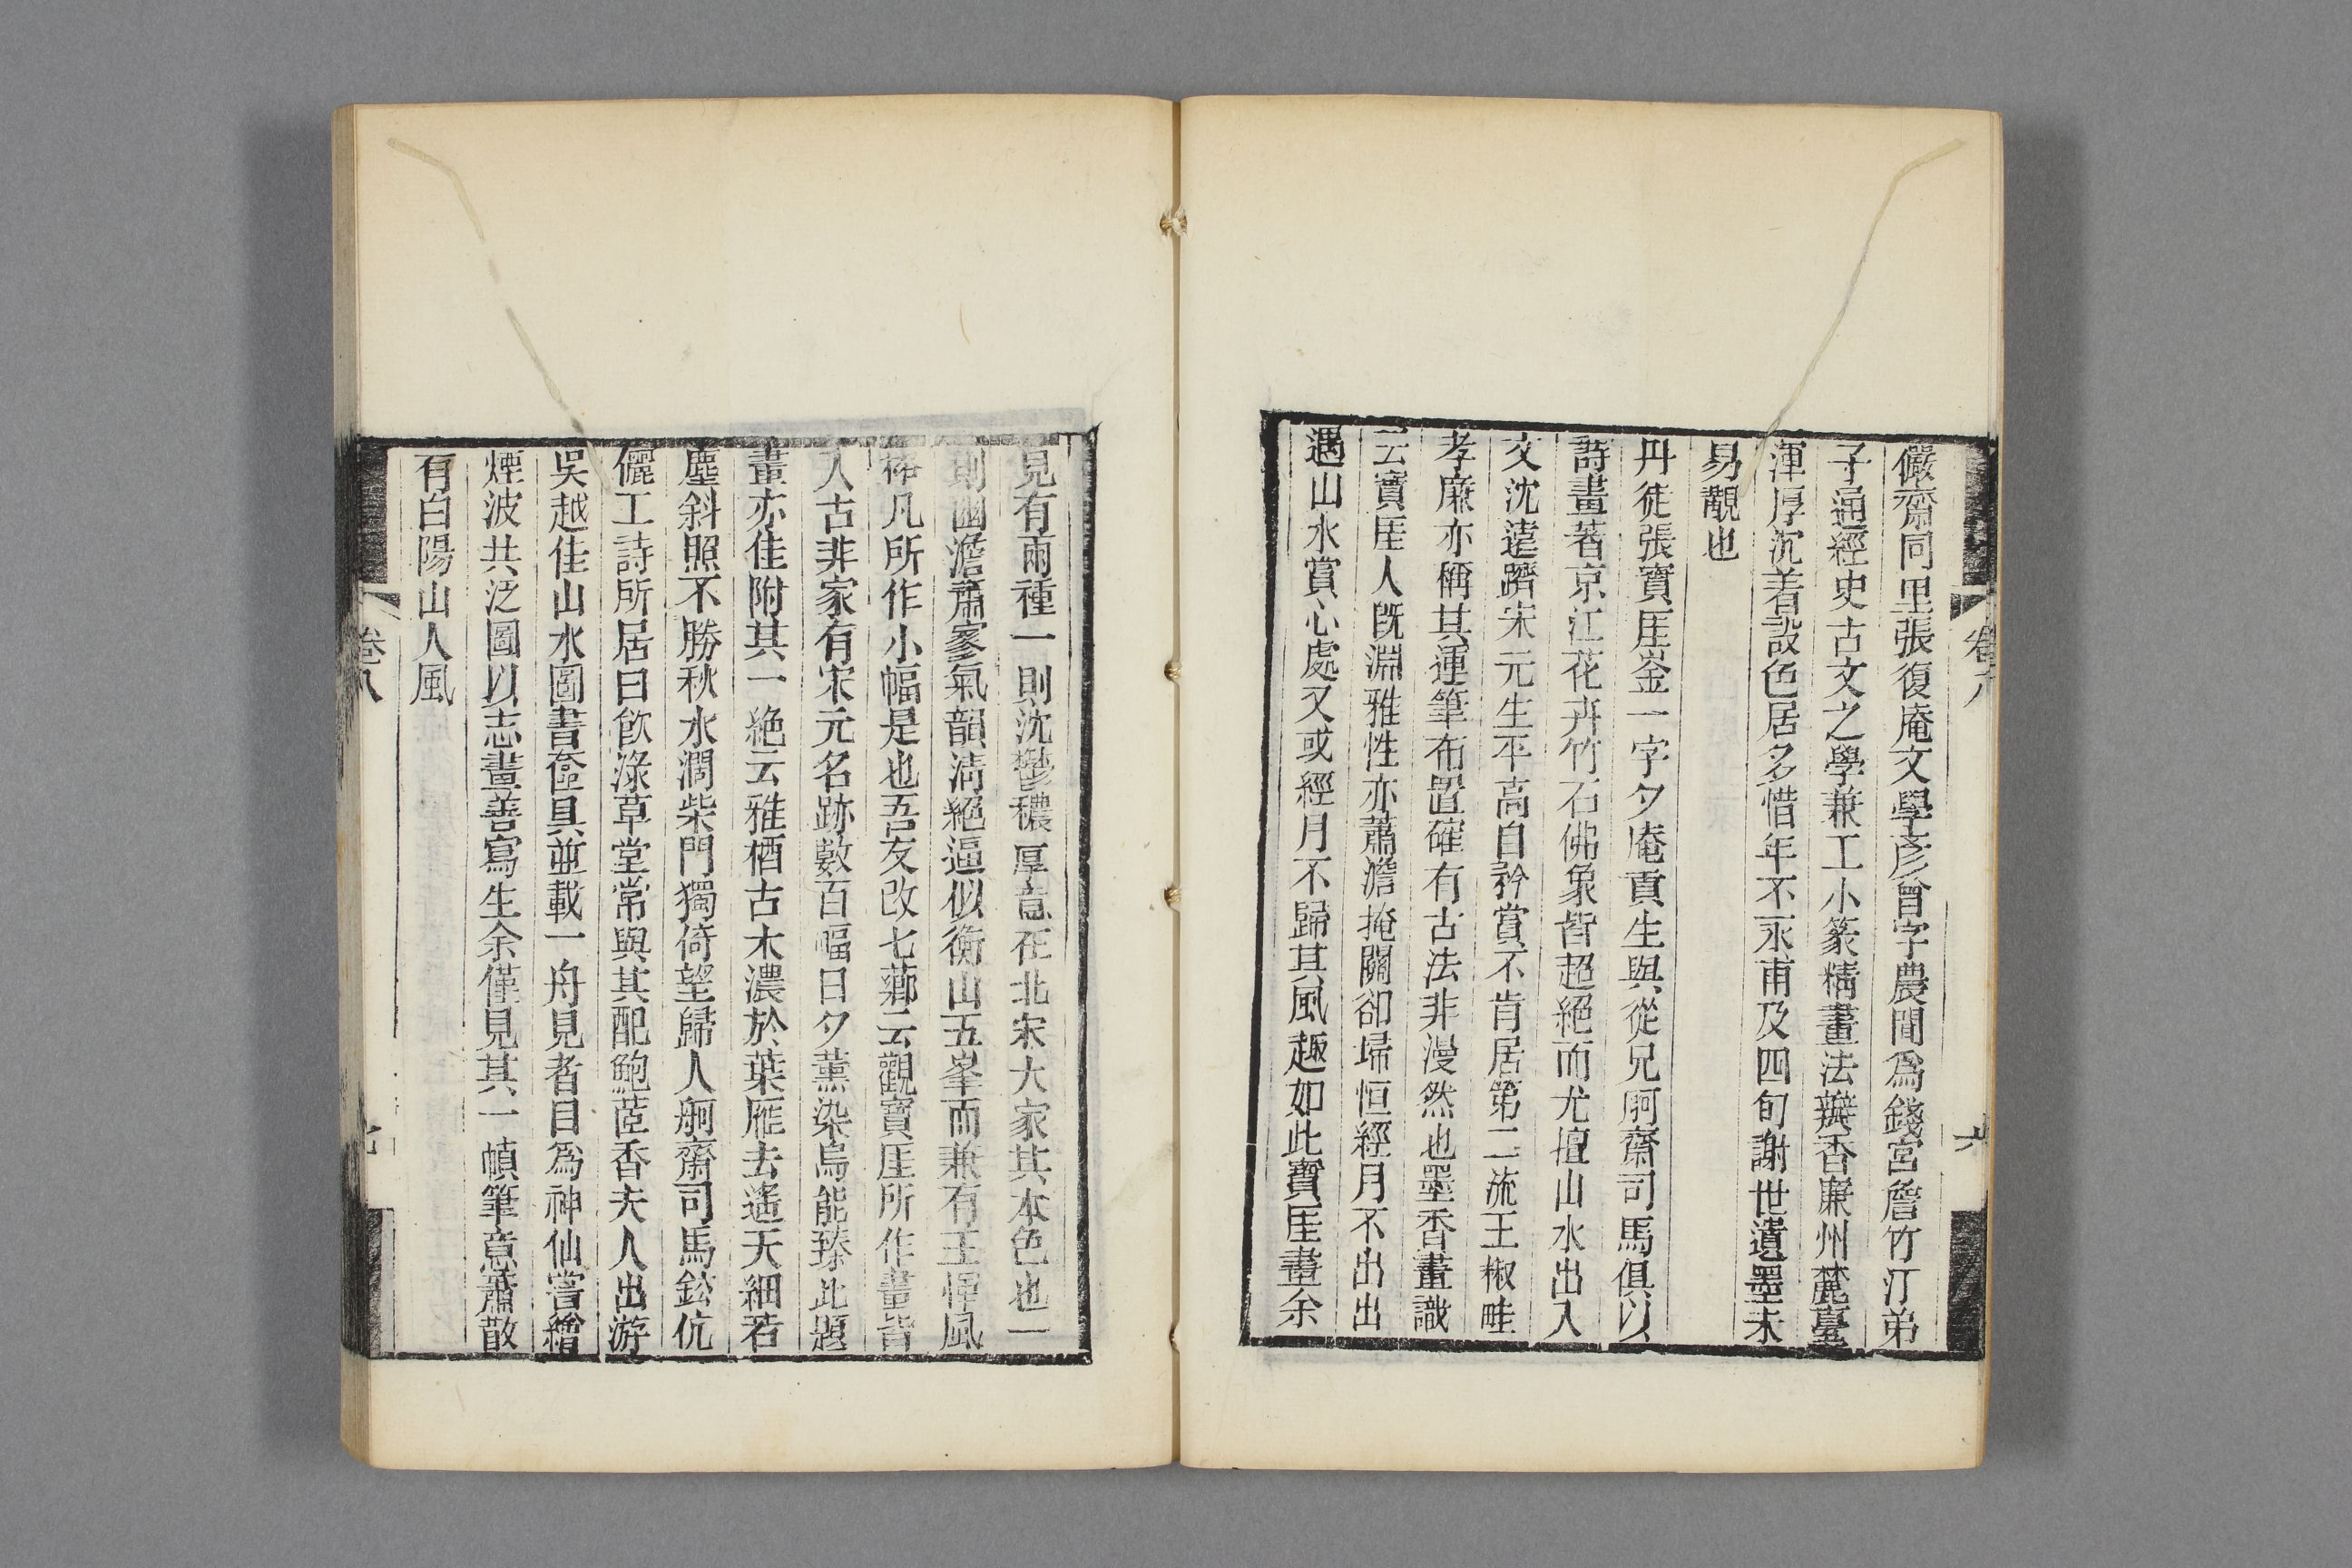 儼齋同里張復庵文學彥曾字農聞爲錢宮詹竹汀弟
子通經史古文之學兼工小篆精畫法瓣香廉州麓臺
渾厚沉着設色居多惜年不永甫及四旬謝世遺墨未
易覯也
丹徒張寶厓崟一字夕庵貢生與從兄舸齋司馬俱以
詩畫著京江花卉竹石佛象皆超絕而尤擅山水出入
文沈遠躋宋元生平高自矜賞不肯居第二流王椒畦
孝廉亦稱其運筆布置確有古法非漫然也墨香畫識
云寶厓人旣淵雅性亦蕭澹掩關卻埽恒經月不出出
遇山水賞心處又或經月不歸其風趣如此寶厓畫余
卷八
見有兩種一則沈鬱穠厚意在北宋大家其本色也一
則幽澹蕭寥氣韻淸絕逼似衡山五峯而兼有王惲風
神凡所作小幅是也吾友改七薌云觀寶厓所作畫皆
入古非家有宋元名跡數百幅日夕薰染烏能臻此題
畫亦佳附其一絕云雅栖古木濃於葉雁去遙天細若
塵斜照不勝秋水濶柴門獨倚望歸人舸齋司馬鉉伉
儷工詩所居曰飮淥草堂常與其配鮑茝香夫人出游
吳越佳山水圖書奩具並載一舟見者目爲神仙嘗繪
煙波共泛圖以志畫善寫生余僅見其一幀筆意蕭散
有白陽山人風
卷八